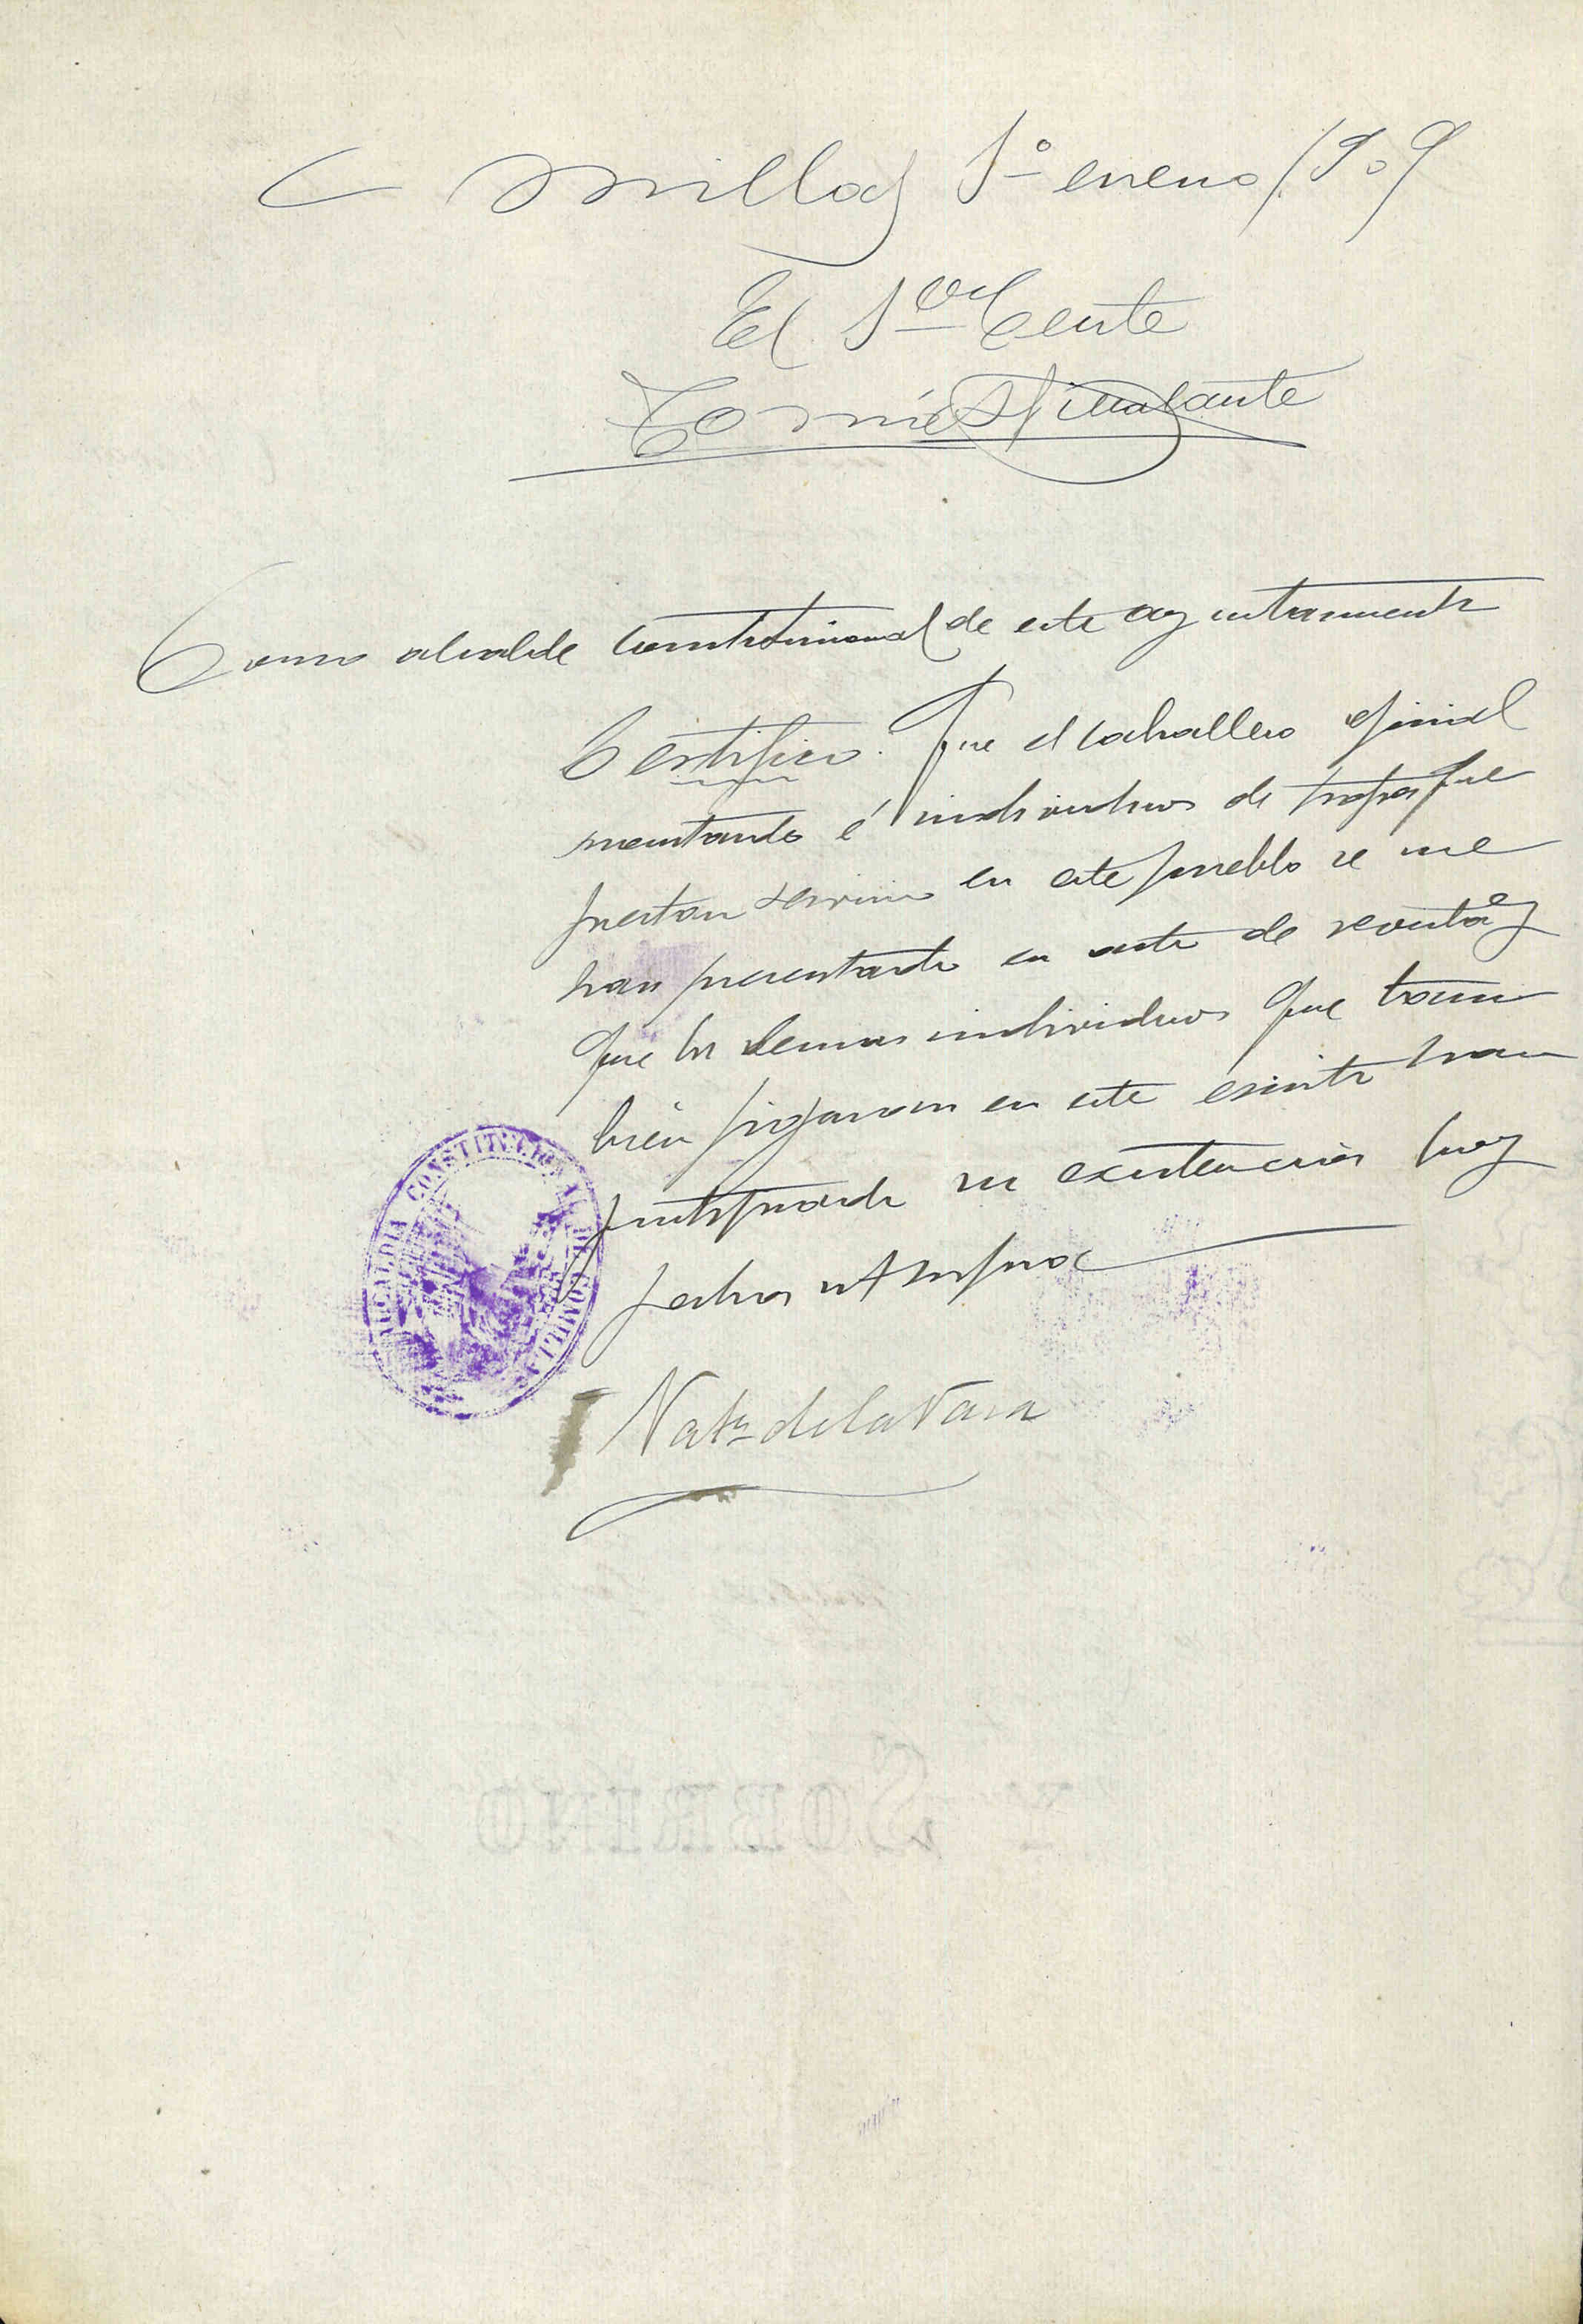 Comillas 1º enero 1909
El 1er Tente
Tomás
Como alcalde constitucional de este ayuntamiento
Certifico: Que el caballero oficial
é individuos de tropa que
prestan servicio en este pueblo se me
han presentado en acto de revista y
que los demas individuos que tam
bien figuran en este escrito han
justificado su existencia hoy
fecha ut supra
ALCALDIA CONSTITUCIONAL DE COMILLAS
de la Vara
Y SOBRINO